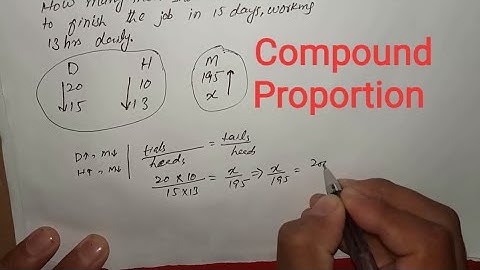 How many men
to finish the job in 15 days, working
13 hrs daily.
D H M
20 10 195
15 13 x
Compound
Proportion
D↑, M↓ tials/heads = tails/heeds
H↑, M↓
20 × 10/15 × 13 = x/195 ⇒ x/195 = 200